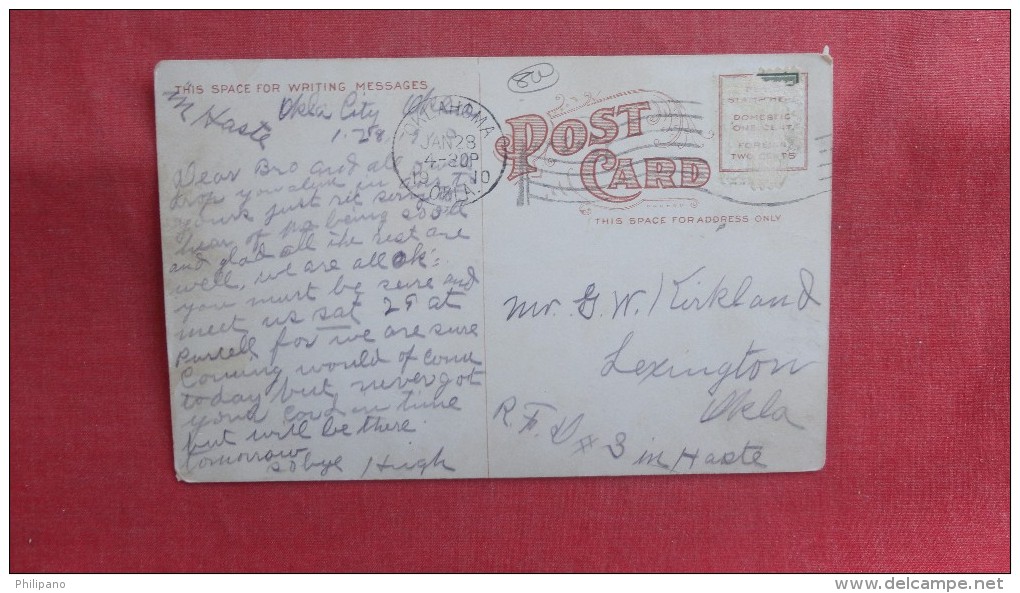 THIS SPACE FOR WRITING MESSAGES
In Haste
Okla City Okla
1-28,
Dear Bro and all
Drop you a line in
yours just rec sorry to
hear of pa being so ill
and glad all the rest are
well, we are all ok:
you must be sure and
meet us sat 29 at
Purcell for we are sure
Coming would of come
today but never got
your Card in time
but will be there
tomorrow
Hugh
OKLAHOMA
JAN 28
4-30P
OKLA.
80
POST
CARD
DOMESTIC
ONE CENT,
FOREIGN
TWO CENTS
THIS SPACE FOR ADDRESS ONLY
Mr. G. W. Kirkland
Lexington
Okla
R. F. D # 3 in Haste
Philipano
www.delcampe.net